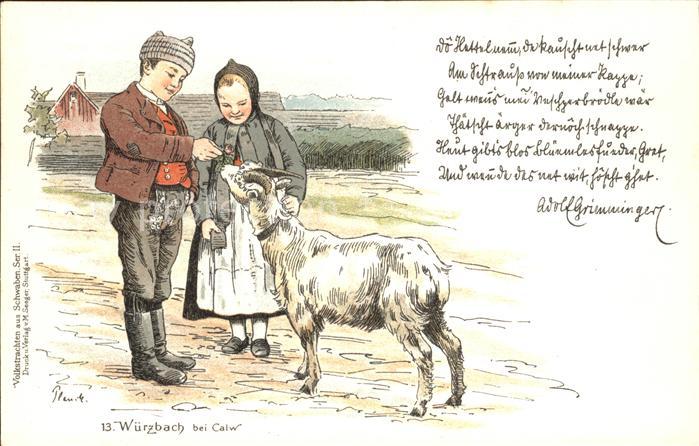 Dô Hettelnemm, de kauscht net schwer
Am Schtrauß von meiner Kappe;
Gelt wenn's mei Veschperbrödle wär
Thätscht ärger dernôch schnappe.
Heut gibt's blos Blüemlesfueder, Gret,
Und wenn de des net wit, höscht ghet.
Adolf Grimminger.
Volkstrachten aus Schwaben. Ser. II.
Druck u. Verlag v. M. Seeger, Stuttgart.
13. Würzbach bei Calw